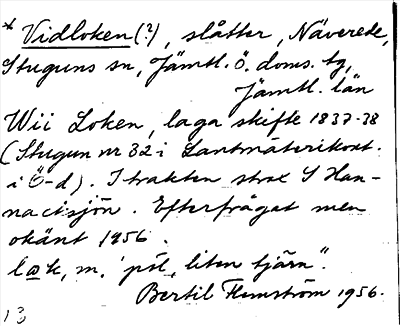 * Vidloken (?), slåtter, Näverede,
Stuguns sn, Jämtl. ö. doms. tg,
Jämtl. län
Wii Loken, laga skifte 1837-38
(Stugun nr 32 i Lantmäterikont.
i Ö-d). I trakten strax S Han-
nactsjön. Efterfrågat men
okänt 1956.
lək, m. 'pöl, liten tjärn".
Bertil Flemström 1956.